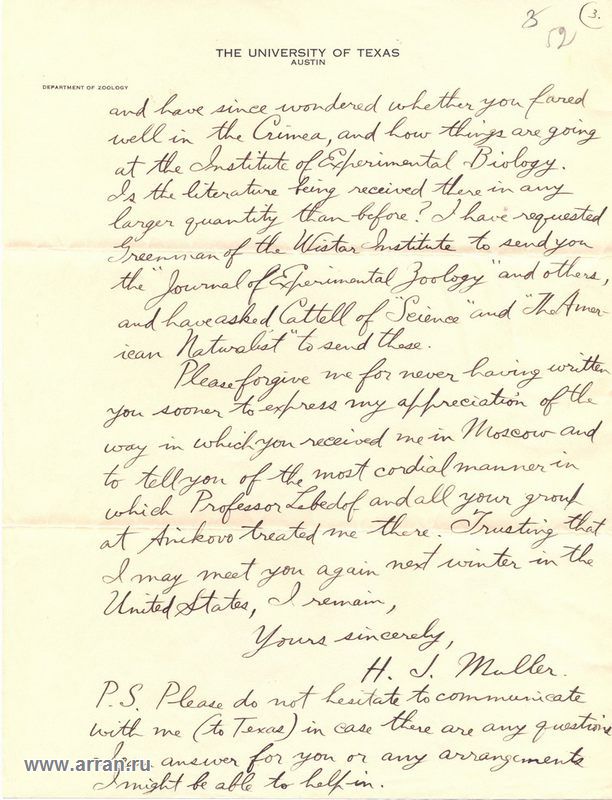 3 3.
52
THE UNIVERSITY OF TEXAS
AUSTIN
DEPARTMENT OF ZOOLOGY
and have since wondered whether you fared
well in the Crimea, and how things are going
at the Institute of Experimental Biology.
Is the literature being received there in any
larger quantity than before? I have requested
Greenman of the Wistar Institute to send you
the "Journal of Experimental Zoology" and others,
and have asked Cattell of "Science" and "The Amer-
ican Naturalist" to send these.
Please forgive me for never having written
you sooner to express my appreciation of the
way in which you received me in Moscow and
to tell you of the most cordial manner in
which Professor Lebedof and all your group
at Anikovo treated me there. Trusting that
I may meet you again next winter in the
United States, I remain,
Yours sincerely,
H. J. Muller.
P.S. Please do not hesitate to communicate
with me (to Texas) in case there are any questions
I can answer for you or any arrangements
I might be able to help in.
www.arran.ru